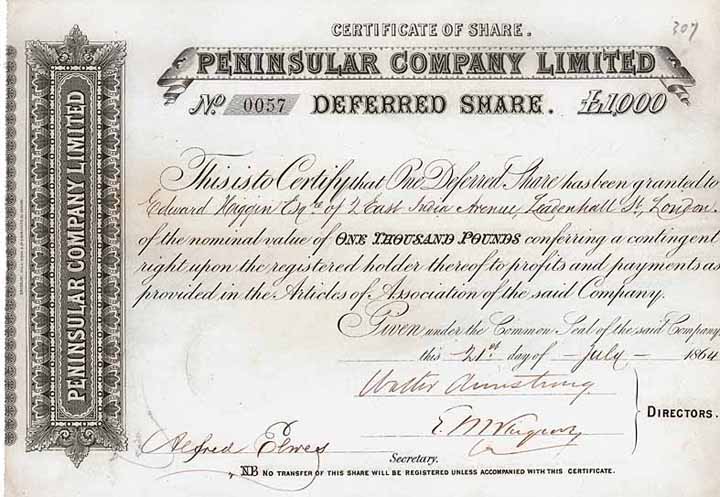 307
CERTIFICATE OF SHARE.
PENINSULAR COMPANY LIMITED
No. 0057 DEFERRED SHARE. £1,000
This is to Certify that One Deferred Share has been granted to
Edward Esqre of 2 East India Avenue, Leadenhall St, London
of the nominal value of ONE THOUSAND POUNDS conferring a contingent
right upon the registered holder thereof to profits and payments as
provided in the Articles of Association of the said Company.
Given under the Common Seal of the said Company
this 21st day of July 1864
Walter Armstrong
DIRECTORS.
Alfred Elwes
Secretary.
NB NO TRANSFER OF THIS SHARE WILL BE REGISTERED UNLESS ACCOMPANIED WITH THIS CERTIFICATE.
PENINSULAR COMPANY LIMITED